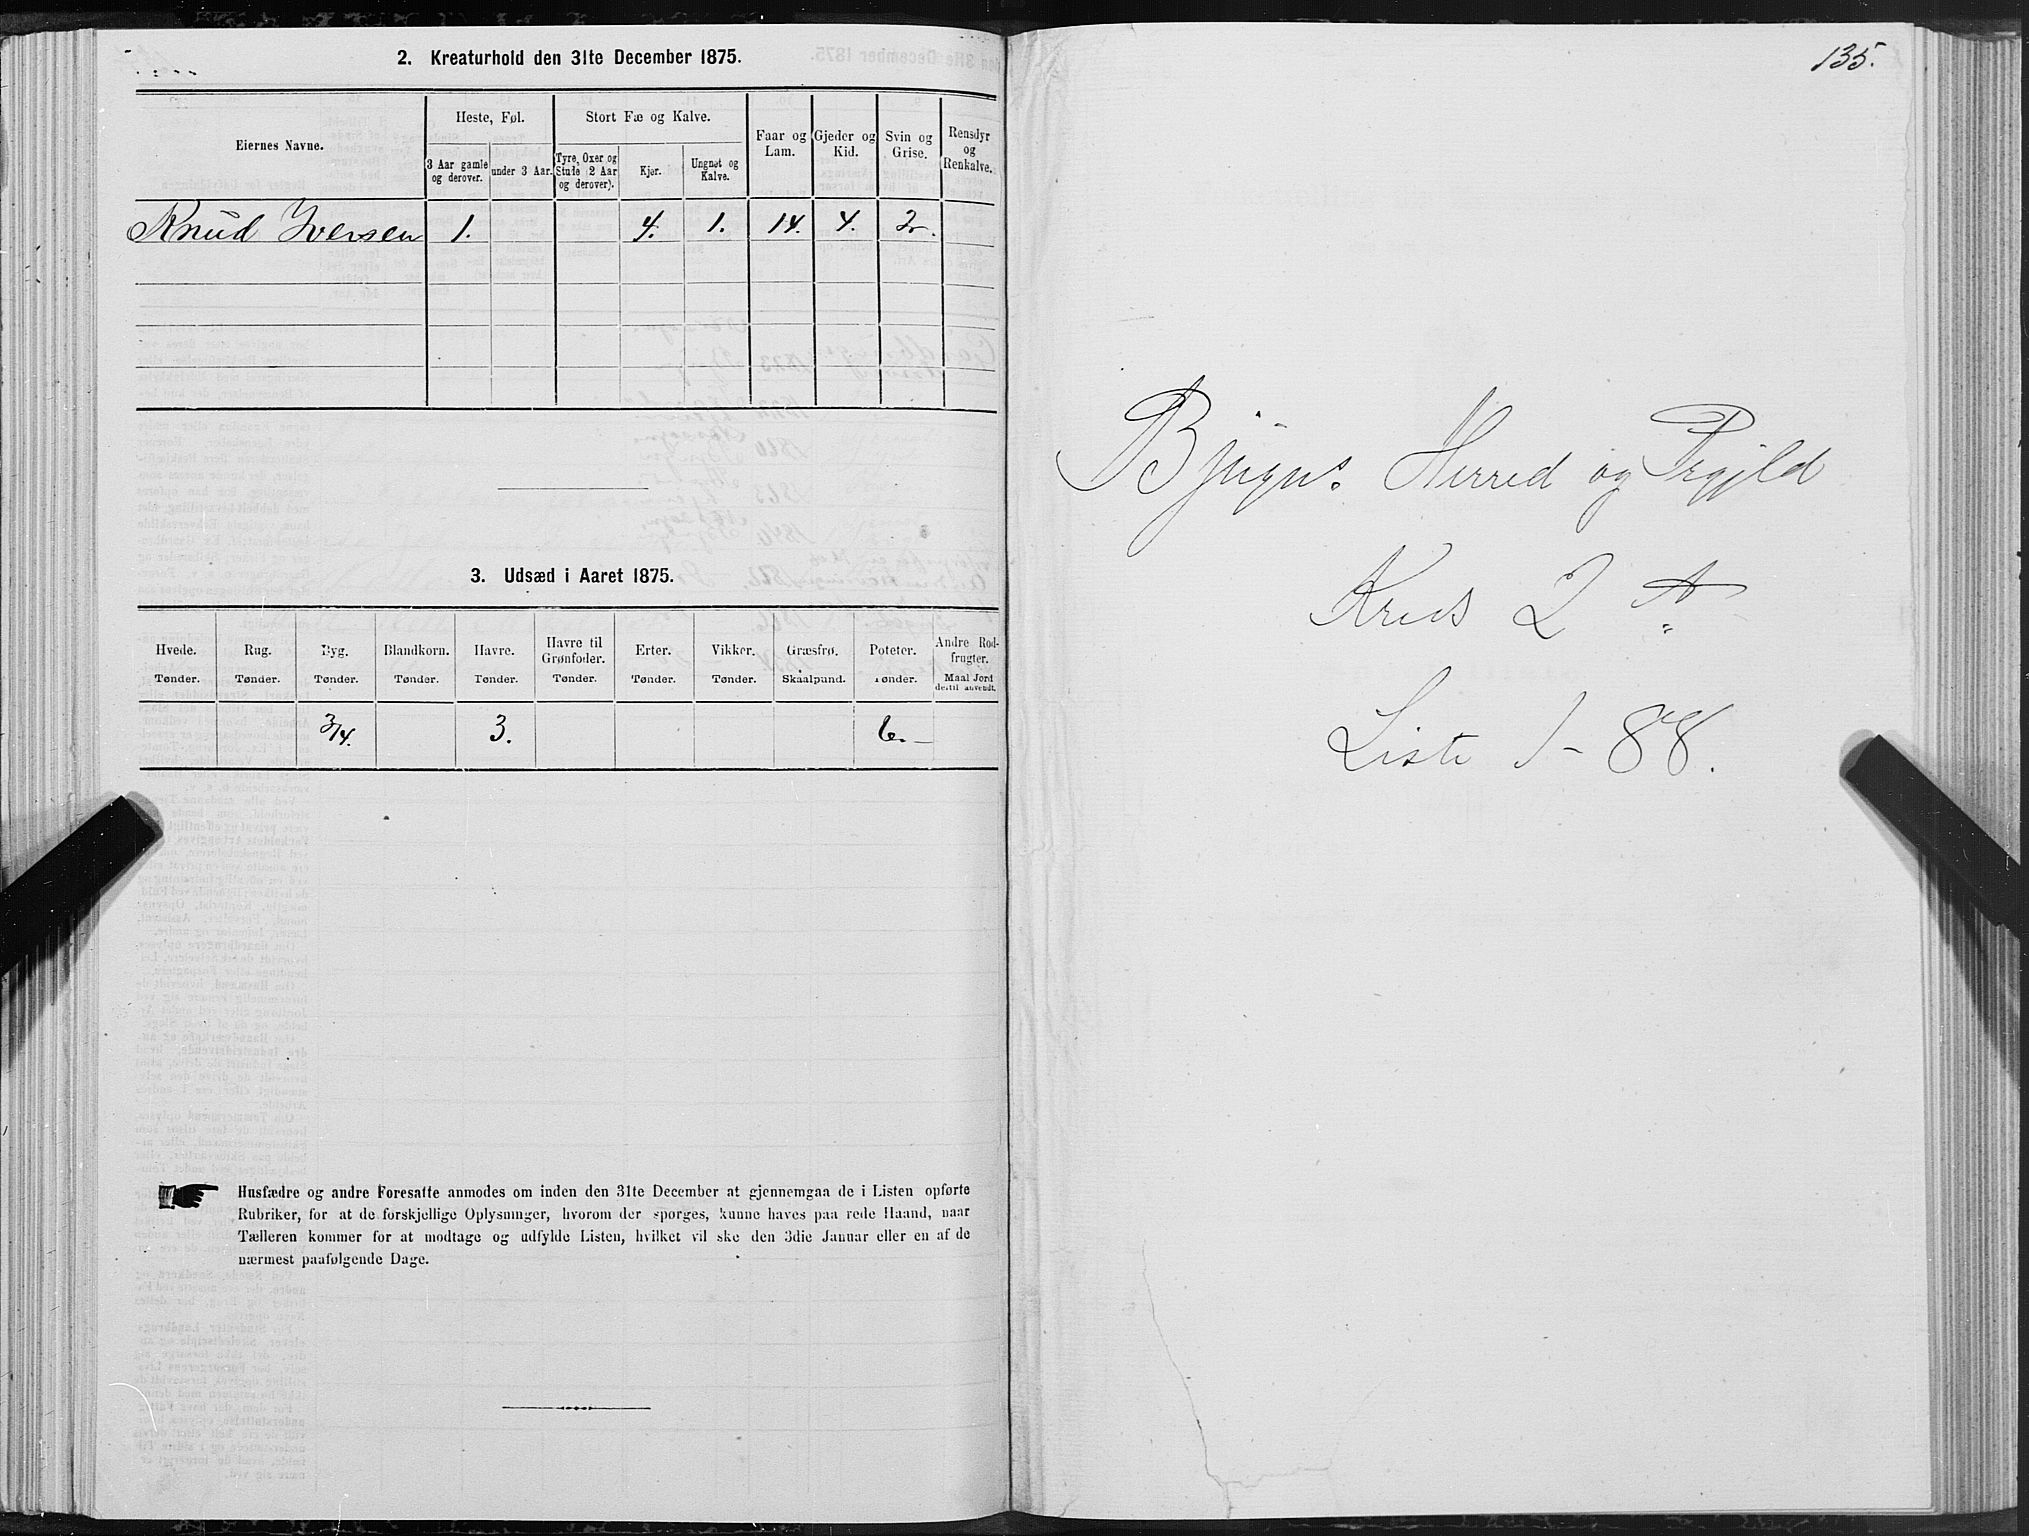 2. Kreaturhold den 31te December 1875.
Eiernes Navne.
Heste, Føl.
Stort Fæ og Kalve.
Faar og Lam.
Gjeder og Kid.
Svin og Grise.
Rensdyr og Renkalve.
3 Aar gamle og derover.
under 3 Aar.
Tyre, Oxer og Stude (2 Aar og derover).
Kjør.
Ungnøt og Kalve.
Knud Iversen 1. 4. 1. 14. 4. 2.
3. Udsæd i Aaret 1875.
Hvede. Rug. Byg. Blandkorn. Havre. Havre til Grønfoder. Erter. Vikker. Græsfrø. Poteter. Andre Rodfrugter.
Tønder. Tønder. Tønder. Tønder. Tønder. Tønder. Tønder. Tønder. Skaalpund. Tønder. Maal Jord dertil anvendt.
3/4. 3. 6.
Husfædre og andre Foresatte anmodes om inden den 31te December at gjennemgaa de i Listen opførte
Rubriker, for at de forskjellige Oplysninger, hvorom der spørges, kunne haves paa rede Haand, naar
Tælleren kommer for at modtage og udfylde Listen, hvilket vil ske den 3die Januar eller en af de
nærmest paafølgende Dage.
135.
Bjugns. Herred og Prgjld
Kreds 2
Liste 1-88.